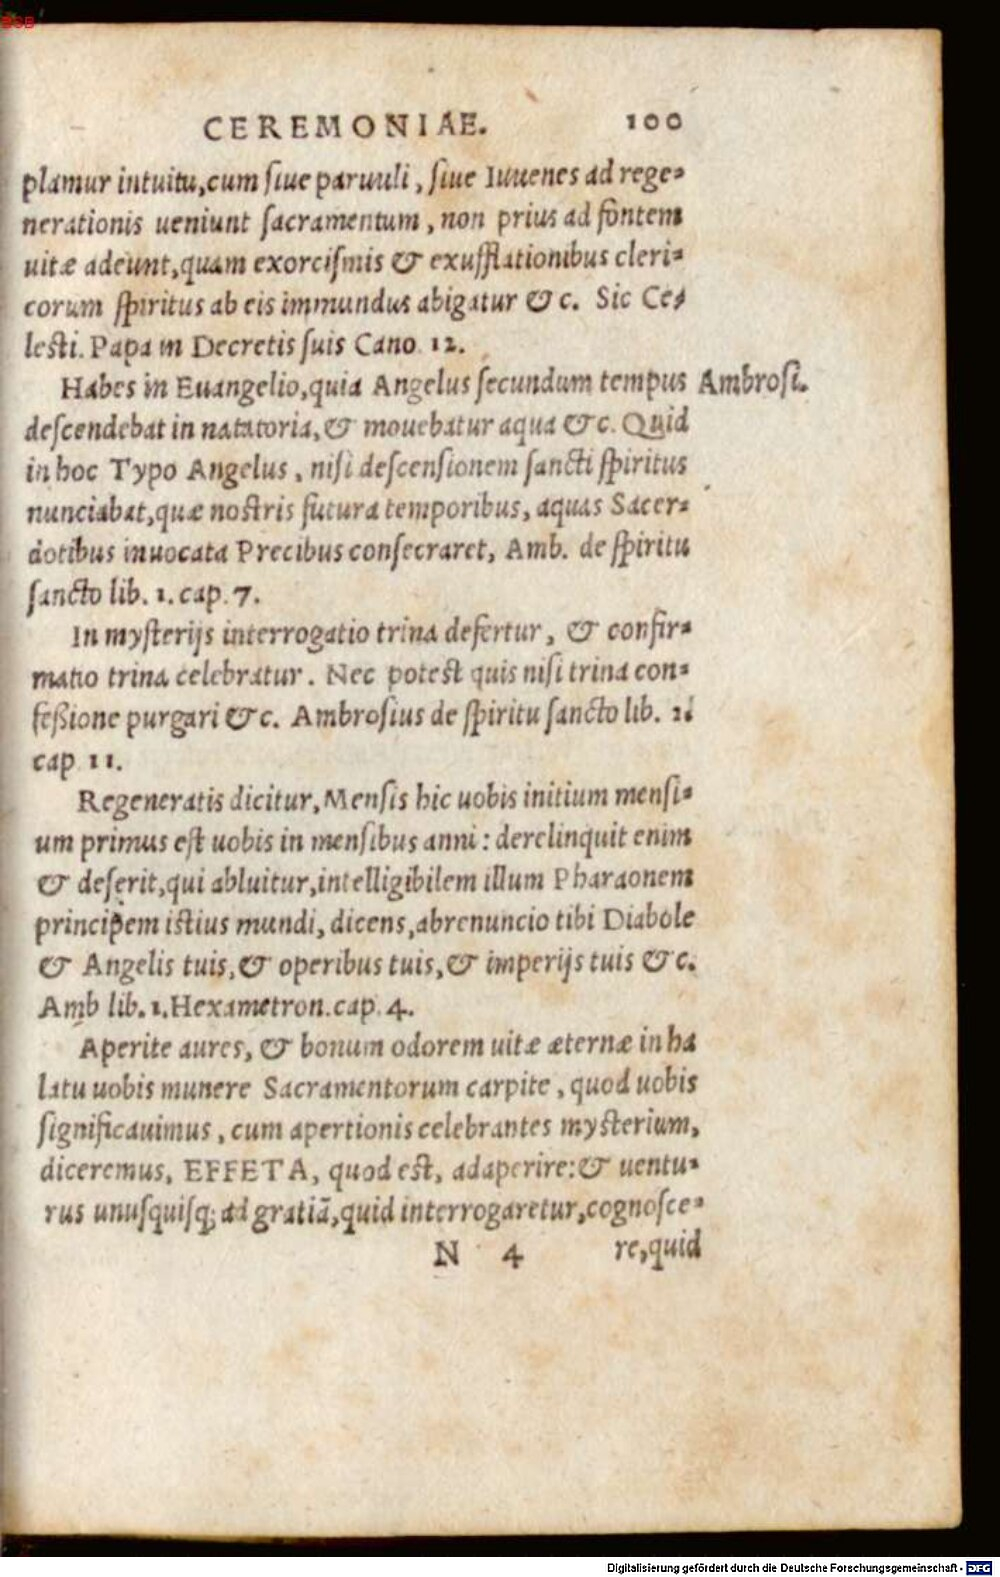 BSB
CEREMONIAE. 100
plamur intuitu, cum ſiue paruuli, ſiue Iuuenes ad rege-
nerationis ueniunt ſacramentum, non prius ad fontem
uitæ adeunt, quam exorciſmis & exufflationibus cleri-
corum ſpiritus ab eis immundus abigatur &c. Sic Ce-
leſti. Papa in Decretis ſuis Cano. 12.
Habes in Euangelio, quia Angelus ſecundum tempus Ambroſi.
deſcendebat in natatoria, & mouebatur aqua &c. Quid
in hoc Typo Angelus, niſi deſcenſionem ſancti ſpiritus
nunciabat, quæ noſtris futura temporibus, aquas Sacer-
dotibus inuocata Precibus conſecraret, Amb. de ſpiritu
ſancto lib. 1. cap. 7.
In myſterijs interrogatio trina defertur, & confir-
matio trina celebratur. Nec poteſt quis niſi trina con-
feßione purgari &c. Ambroſius de ſpiritu ſancto lib. 2.
cap. 11.
Regeneratis dicitur, Menſis hic uobis initium menſi-
um primus eſt uobis in menſibus anni: derelinquit enim
& deſerit, qui abluitur, intelligibilem illum Pharaonem
principem iſtius mundi, dicens, abrenuncio tibi Diabole
& Angelis tuis, & operibus tuis, & imperijs tuis &c.
Amb lib. 1. Hexametron. cap. 4.
Aperite aures, & bonum odorem uitæ æternæ in ha
latu uobis munere Sacramentorum carpite, quod uobis
ſignificauimus, cum apertionis celebrantes myſterium,
diceremus, EFFETA, quod eſt, adaperire: & uentu-
rus unuſquiſq; ad gratiã, quid interrogaretur, cognoſce-
N 4 re, quid
Digitalisierung gefördert durch die Deutsche Forschungsgemeinschaft - DFG